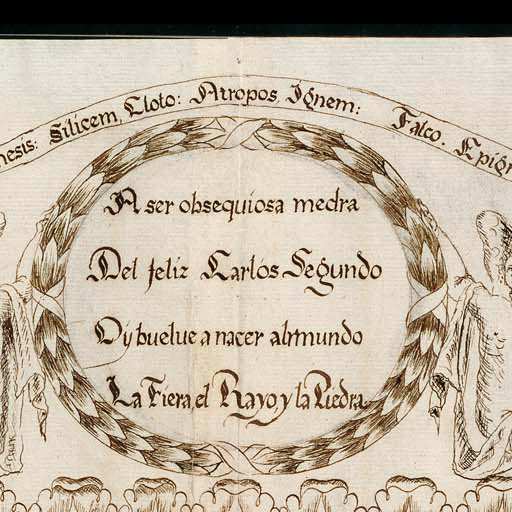 nesis: Silicem, Cloto: Atropos, Ignem: Falco. Epigr
A ser obsequiosa medra
Del feliz Carlos Segundo
Oy buelue a nacer al mundo
La Fiera, el Rayo, y la Piedra